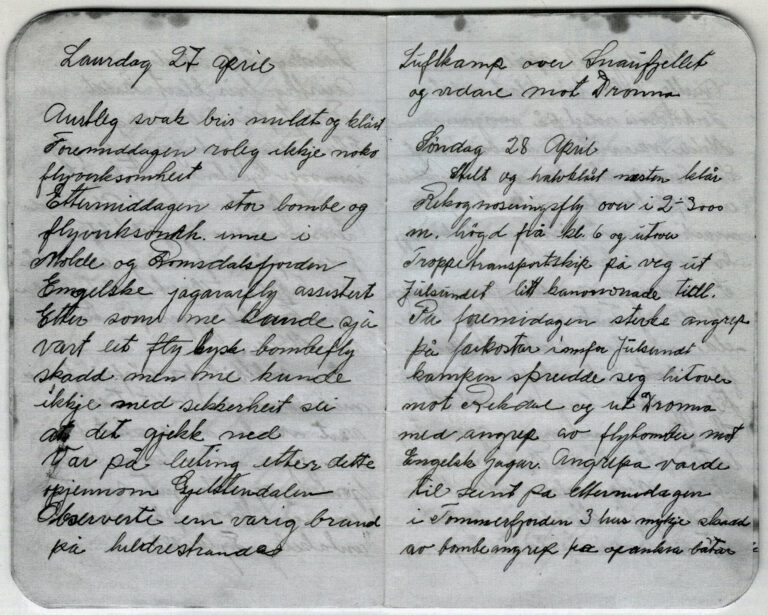 Laurdag 27 april
Austleg svak bris mildt og klårt
Foremiddagen roleg ikkje noko
flyverksomheit
Ettermiddagen stor bombe og
flyverksomh. inne i
Molde og Romsdalsfjorden
Engelske jagararfly assistert
Etter som me kunde sjå
vart eit fly tysk bombefly
skadd men me kunde
ikkje med sikkerheit sei
at det gjekk ned
Var på leeting etter dette
gjennom Gjelstendalen
Observerte ein varig brand
på hildrestrandes
Luftkamp over Snaufjellet
og vidare mot Dronna
Søndag 28 April
Stilt og halvklårt nesten klår
Rekognoseringsfly over i 2-3000
m. högd frå kl 6 og utover
Troppetransportskip på veg ut
Julsundet litt kanonnonade titl.
På foremidagen sterke angrep
på farkostar innfor Julsundt
kampen spreidde seg hitover
mot Rekdal og ut Dronna
med angrep av flybomber mot
Engelsk jagar. Angrepa varde
til seint på ettermidagen
i Tommerfjorden 3 hus mykje skadd
av bombeangrep på opankra båtar